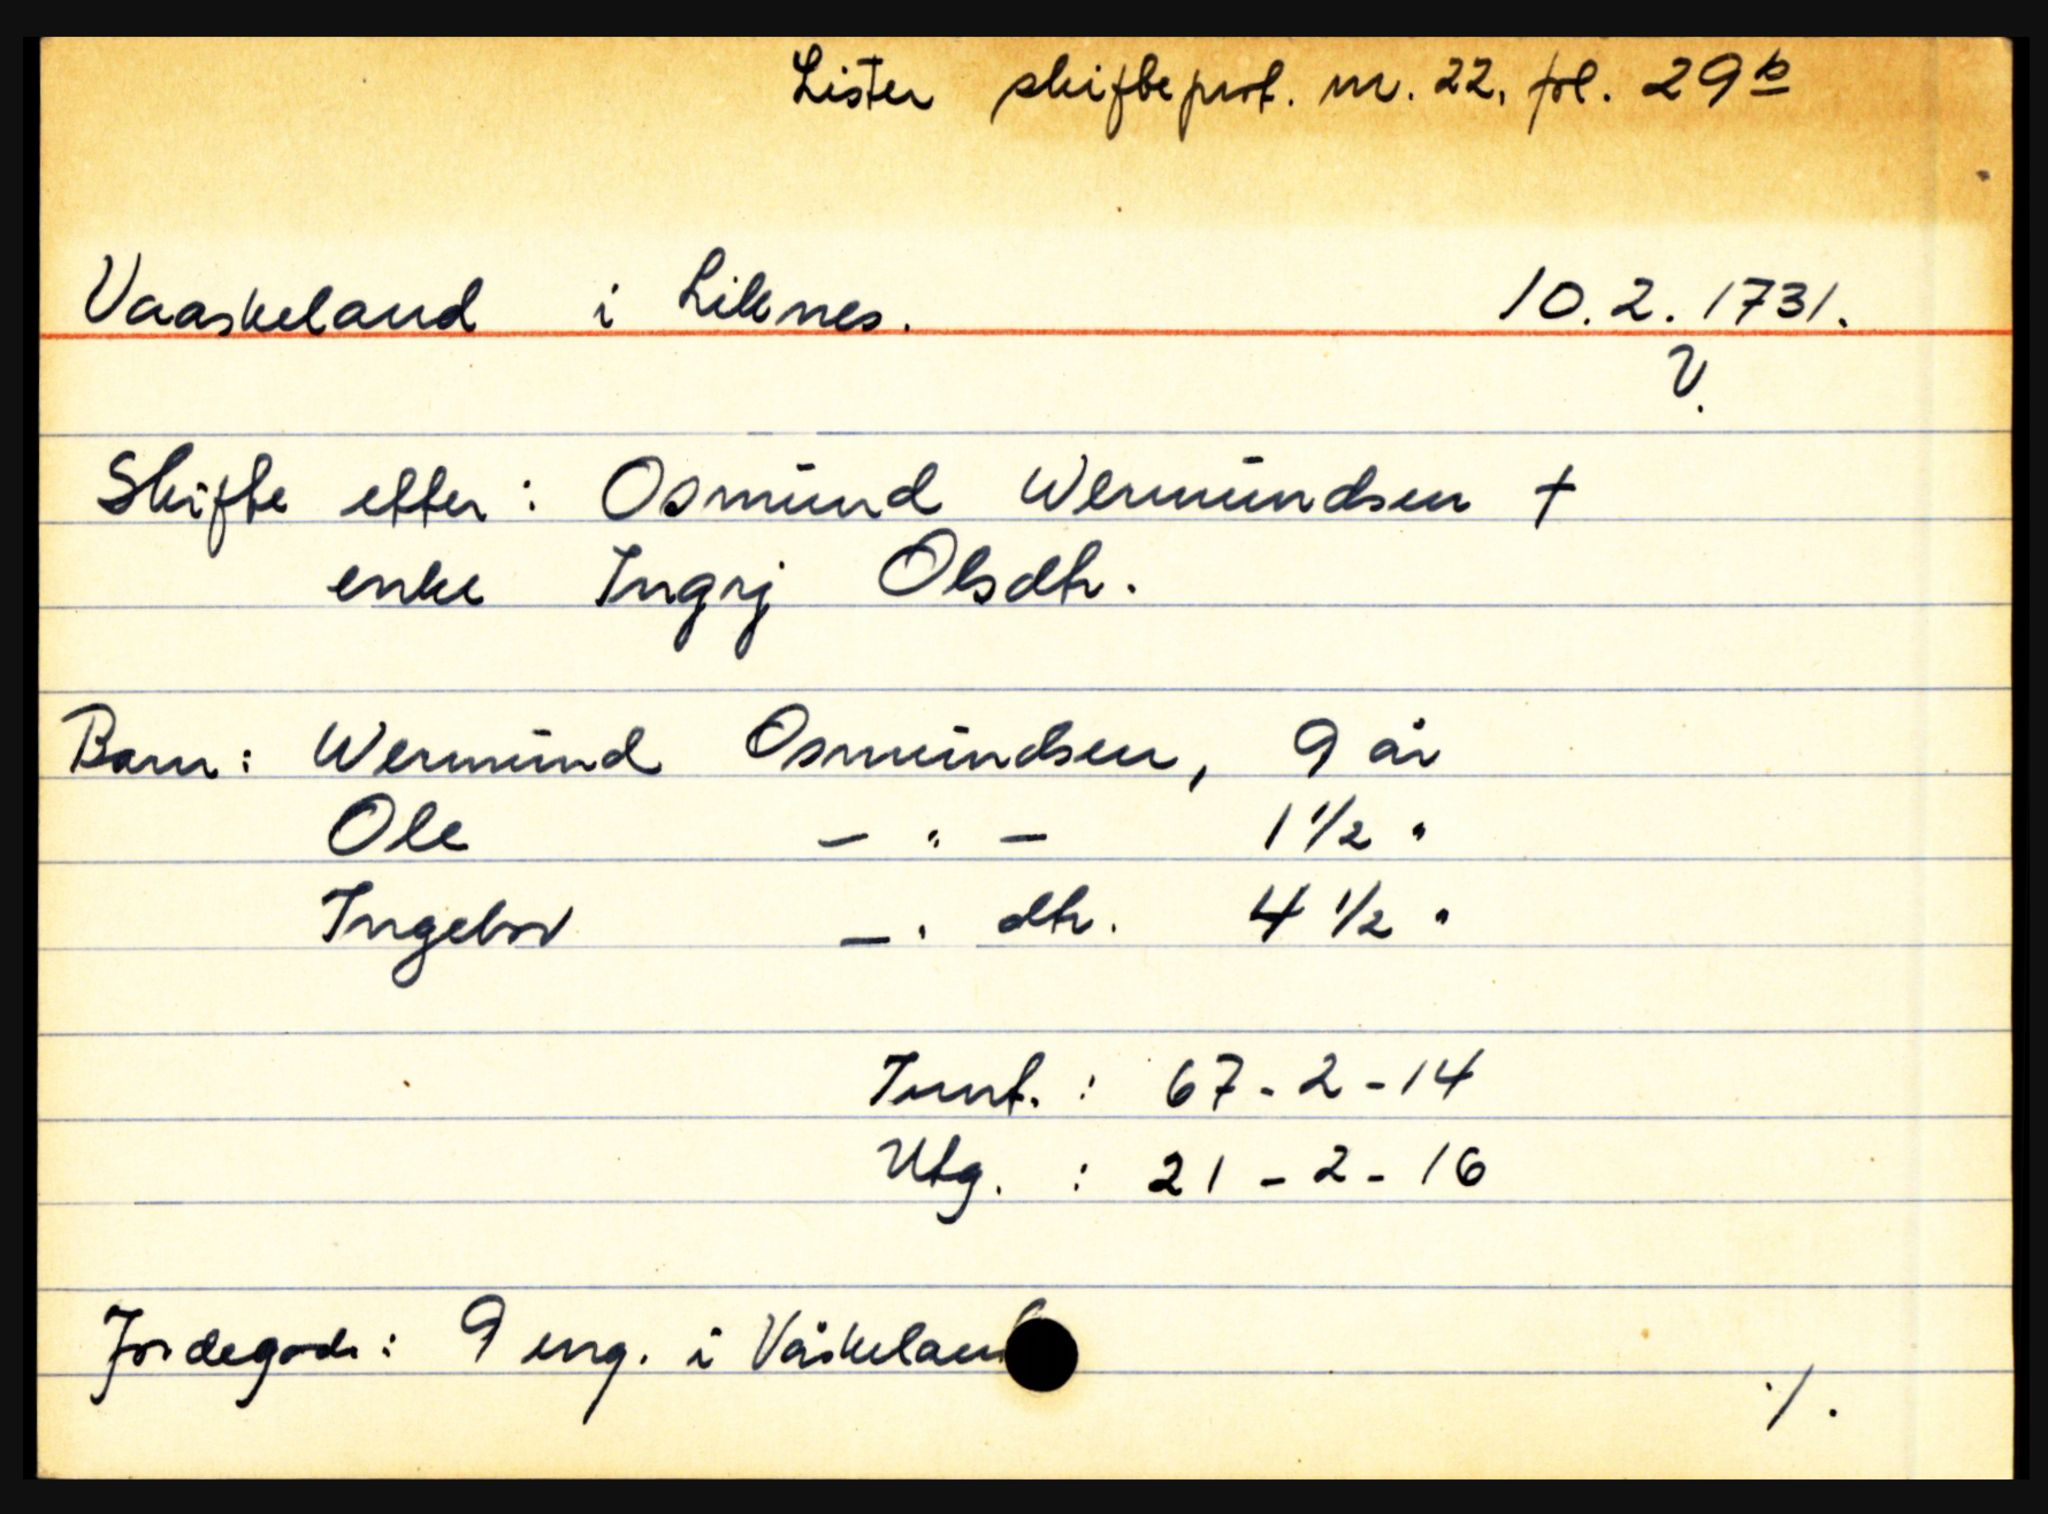 Lister skifteprot. nr. 22, fol. 29b
Vaaskeland i Liknes. 10.2.1731.
V.
Skifte efter: Osmund Wermundsen †
enke Ingrj Olsdtr.
Barn: Wermund Osmundsen, 9 år
Ole — " — 1 1/2 "
Ingebor — " dtr. 4 1/2 "
Innt. : 67 - 2 - 14
Utg. : 21 - 2 - 16
Jordegods: 9 eng. i Våskeland
./.